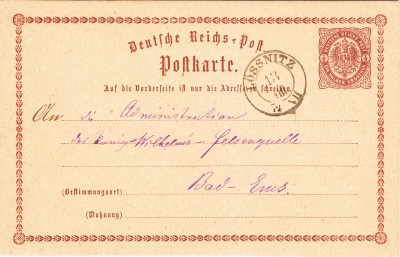 Deutsche Reichs-Post.
Postkarte.
LÖSSNITZ
13
74
Auf die Vorderseite ist nur die Adresse zu schreiben
An die Administration
der König-Wilhelm's-Felsenquelle
Bad-Ems.
(Bestimmungsort)
(Wohnung)